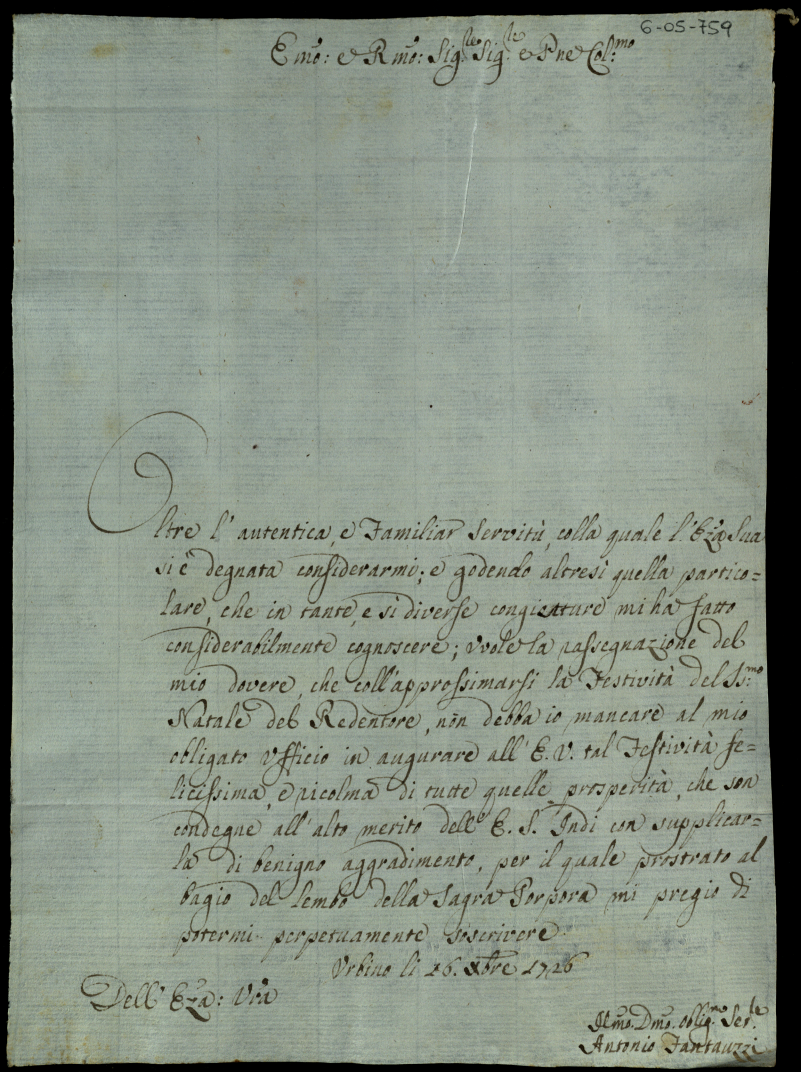 6-05-759
Emo: e Rmo: Sig.le Sig.le e Pne Col:mo
Oltre l'autentica, e Familiar Servitù, colla quale l'Eza Sua
si è degnata considerarmi; e godendo altresì quella partico=
lare, che in tante, e sì diverse congietture mi ha fatto
considerabilmente cognoscere; vuole la rassegnazione del
mio dovere, che coll'approssimarsi la Festività del Ss:mo
Natale del Redentore, non debba io mancare al mio
obligato Ufficio in augurare all'E. V. tal Festività fe=
licissima, e ricolma di tutte quelle prosperità, che son
condegne all'alto merito dell'E. S. Indi con supplicar=
la di benigno aggradimento, per il quale prostrato al
bagio del lembo della Sagra Porpora mi pregio di
potermi perpetuamente soscrivere
Urbino li 16. Xbre 1726
Dell'Eza: Vra
Umo. Dmo. oblig.mo Ser.le
Antonio Fantauzzi